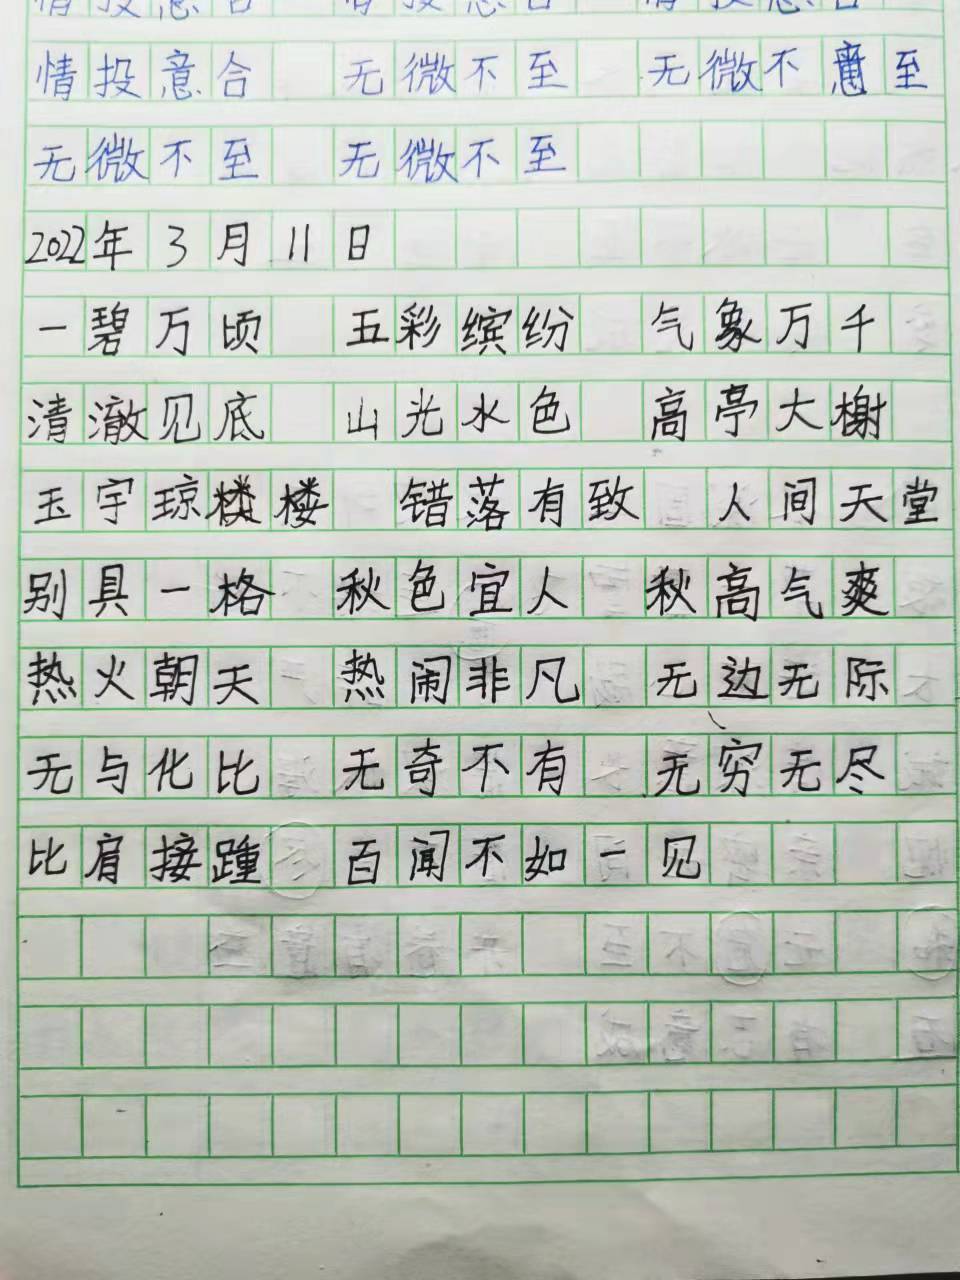 情投意合 有投意合 情投意合
情投意合 无微不至 无微不意至
无微不至 无微不至
2022年3月11日
一碧万顷 五彩缤纷 气象万千
清澈见底 山光水色 高亭大榭
玉宇琼楼楼 错落有致 人间天堂
别具一格 秋色宜人 秋高气爽
热火朝天 热闹非凡 无边无际
无与化比 无奇不有 无穷无尽
比肩接踵 百闻不如一见